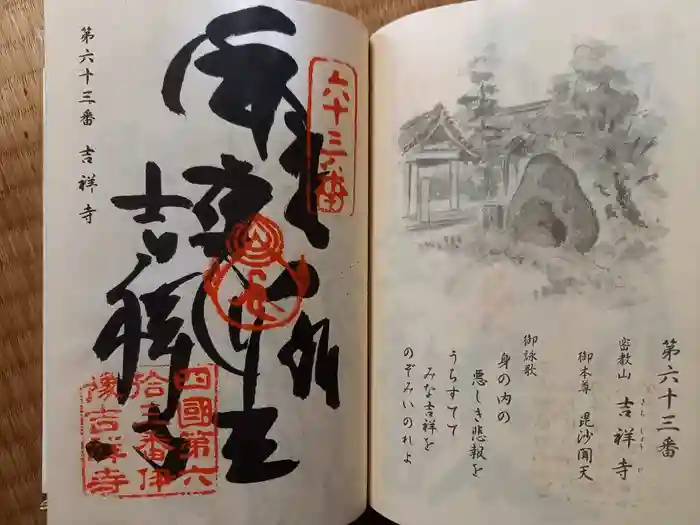 第六十三番
密教山 吉祥寺
きちしょうじ
御本尊 毘沙聞天
御詠歌
身の内の
悪しき悲報を
うちすてて
みな吉祥を
のぞみいのれよ
六十三番
奉
吉祥寺
四國第六
拾三番伊
豫吉祥寺
第六十三番 吉祥寺